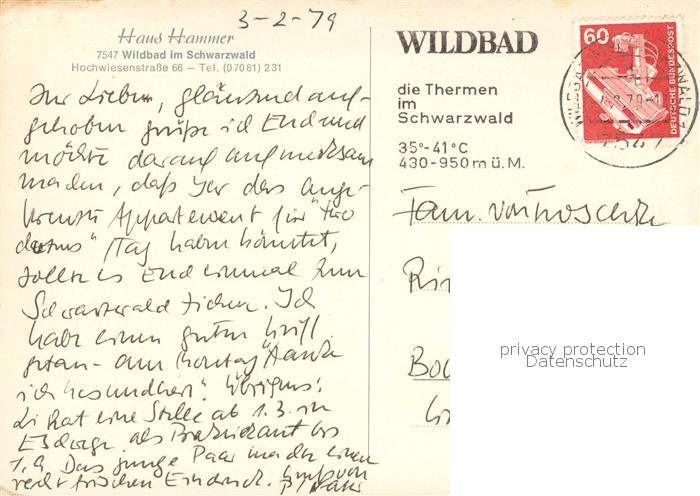 3-2-79
Haus Hammer
7547 Wildbad im Schwarzwald
Hochwiesenstraße 66 – Tel. (07081) 231
Ihr Lieben, glänzend auf-
gehoben grüße ich Euch und
möchte darauf aufmerksam
machen, daß Ihr das ange-
kreuzte Appartement für "two
" /Tag haben könntet,
sollte es Euch einmal zum
Schwarzwald ziehen. Ich
habe einen guten
getan – am Montag "
ich kesundheit". Übrigens:
hat eine Stelle ab 1.3. in
als Praktikant bis
1.9. Das junge Paar machte einen
recht frischen Eindruck. Gruß von
WILDBAD
die Thermen
im
Schwarzwald
35°-41°C
430-950 m ü. M.
60
DEUTSCHE BUNDESPOST
Fam. von
privacy protection
Datenschutz